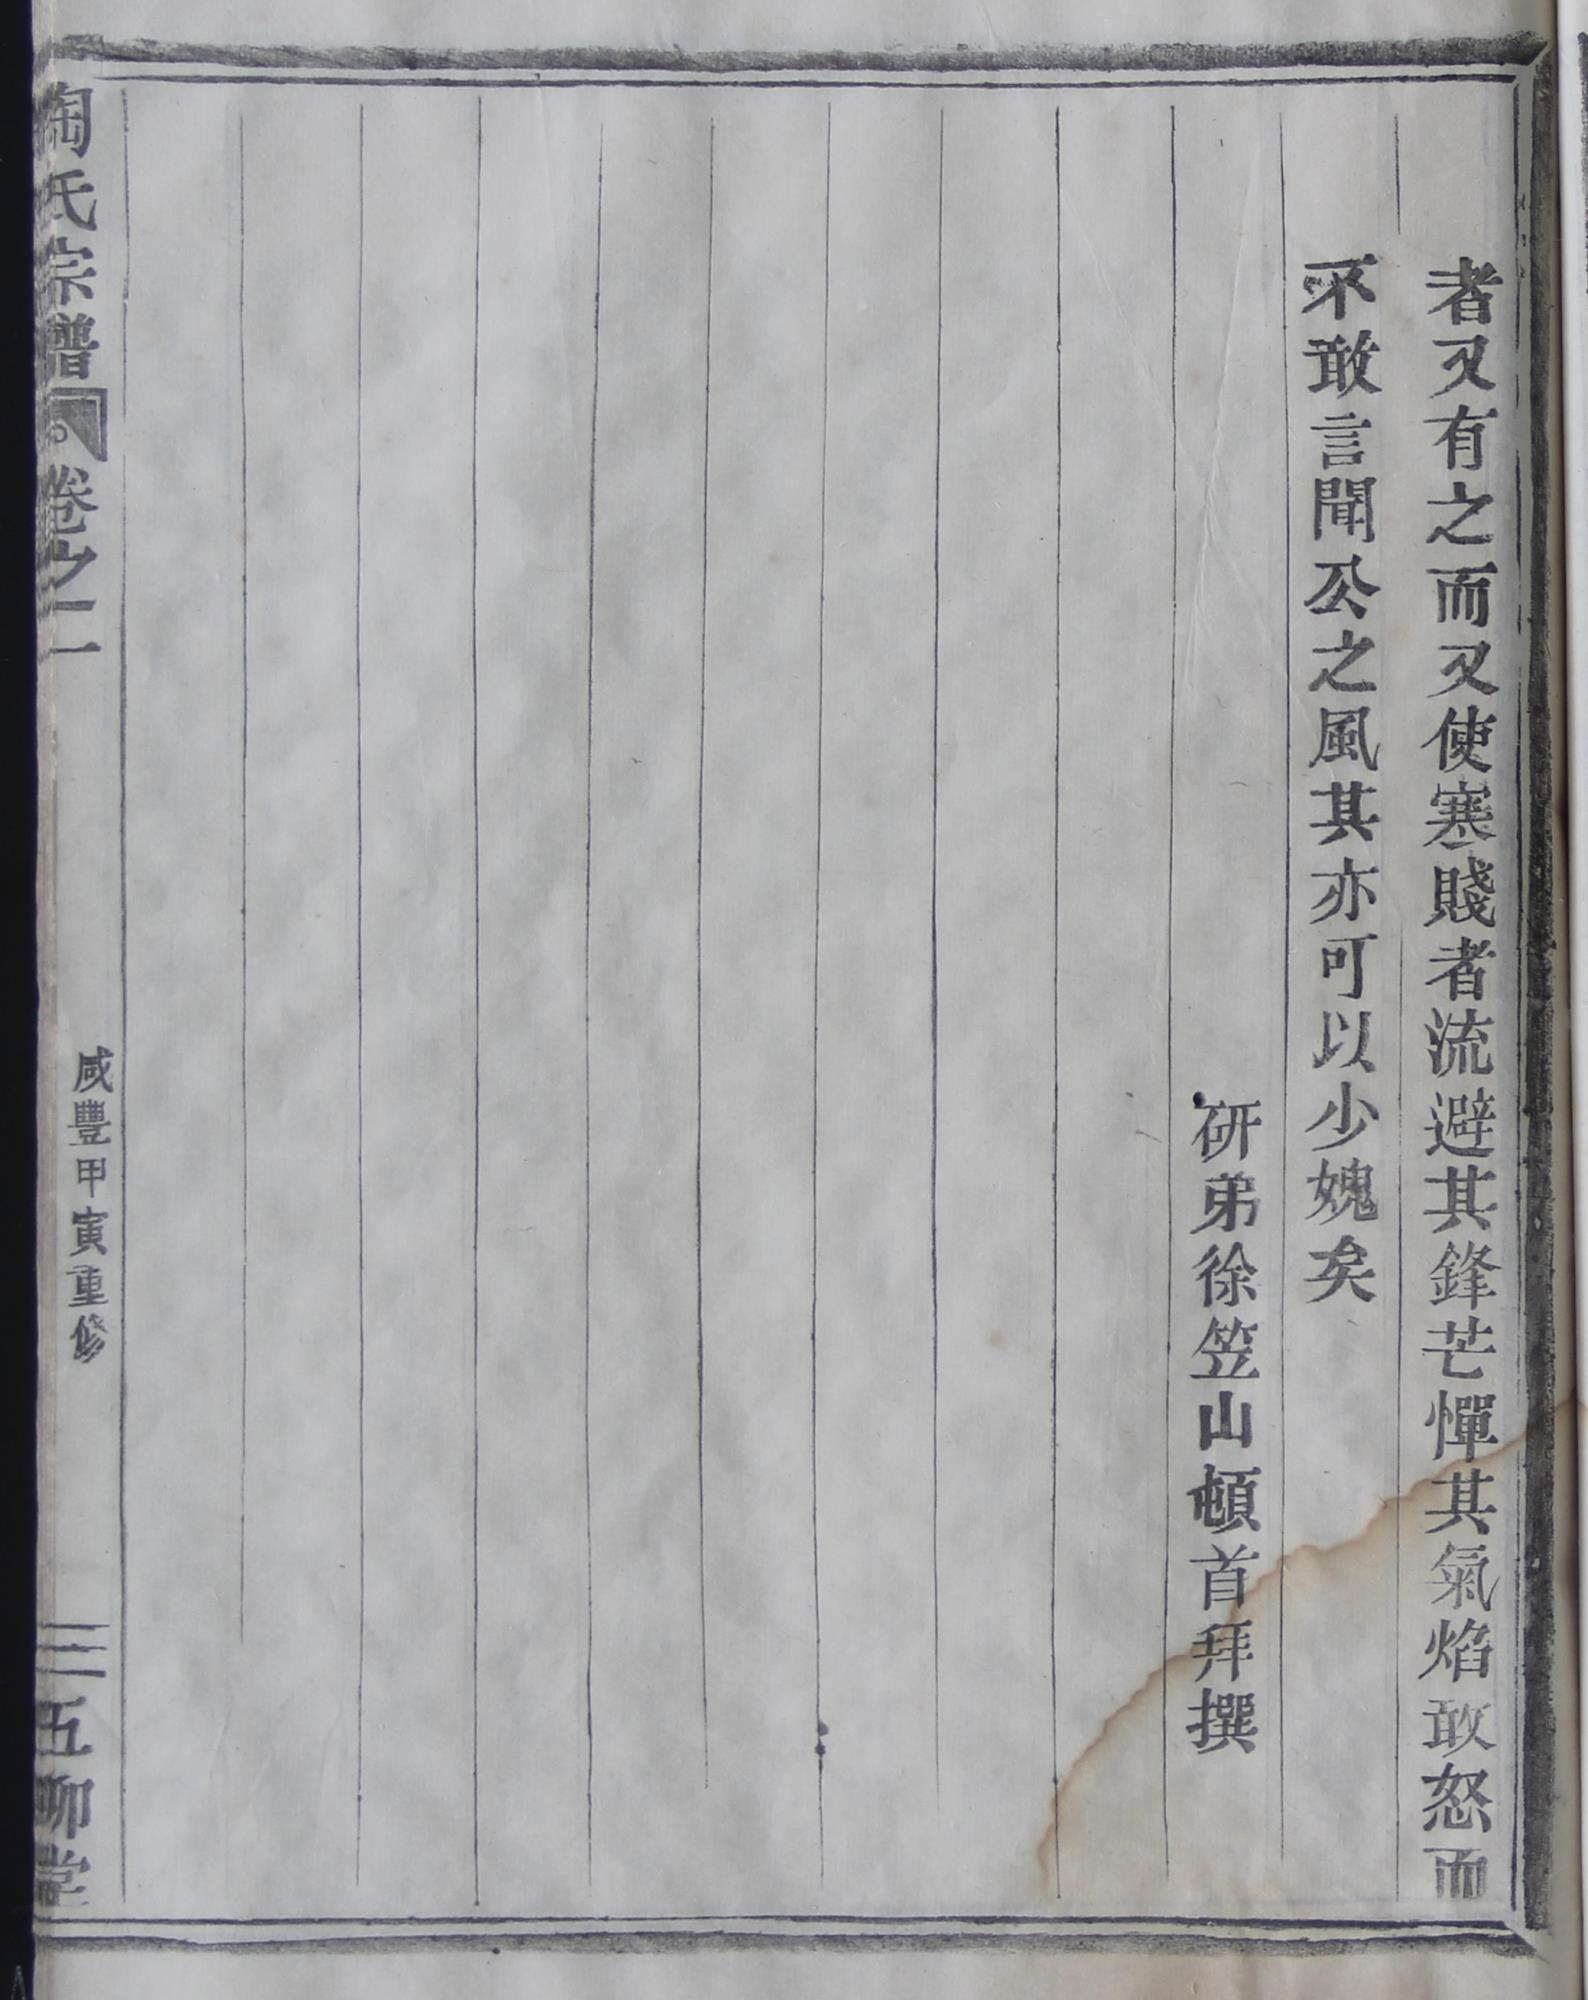 者又有之而又使寒賤者流避其鋒芒憚其氣焰敢怒而
不敢言聞公之風其亦可以少媿矣
研弟徐笠山頓首拜撰
陶氏宗譜 卷之一
咸豐甲寅重修
三 五柳堂